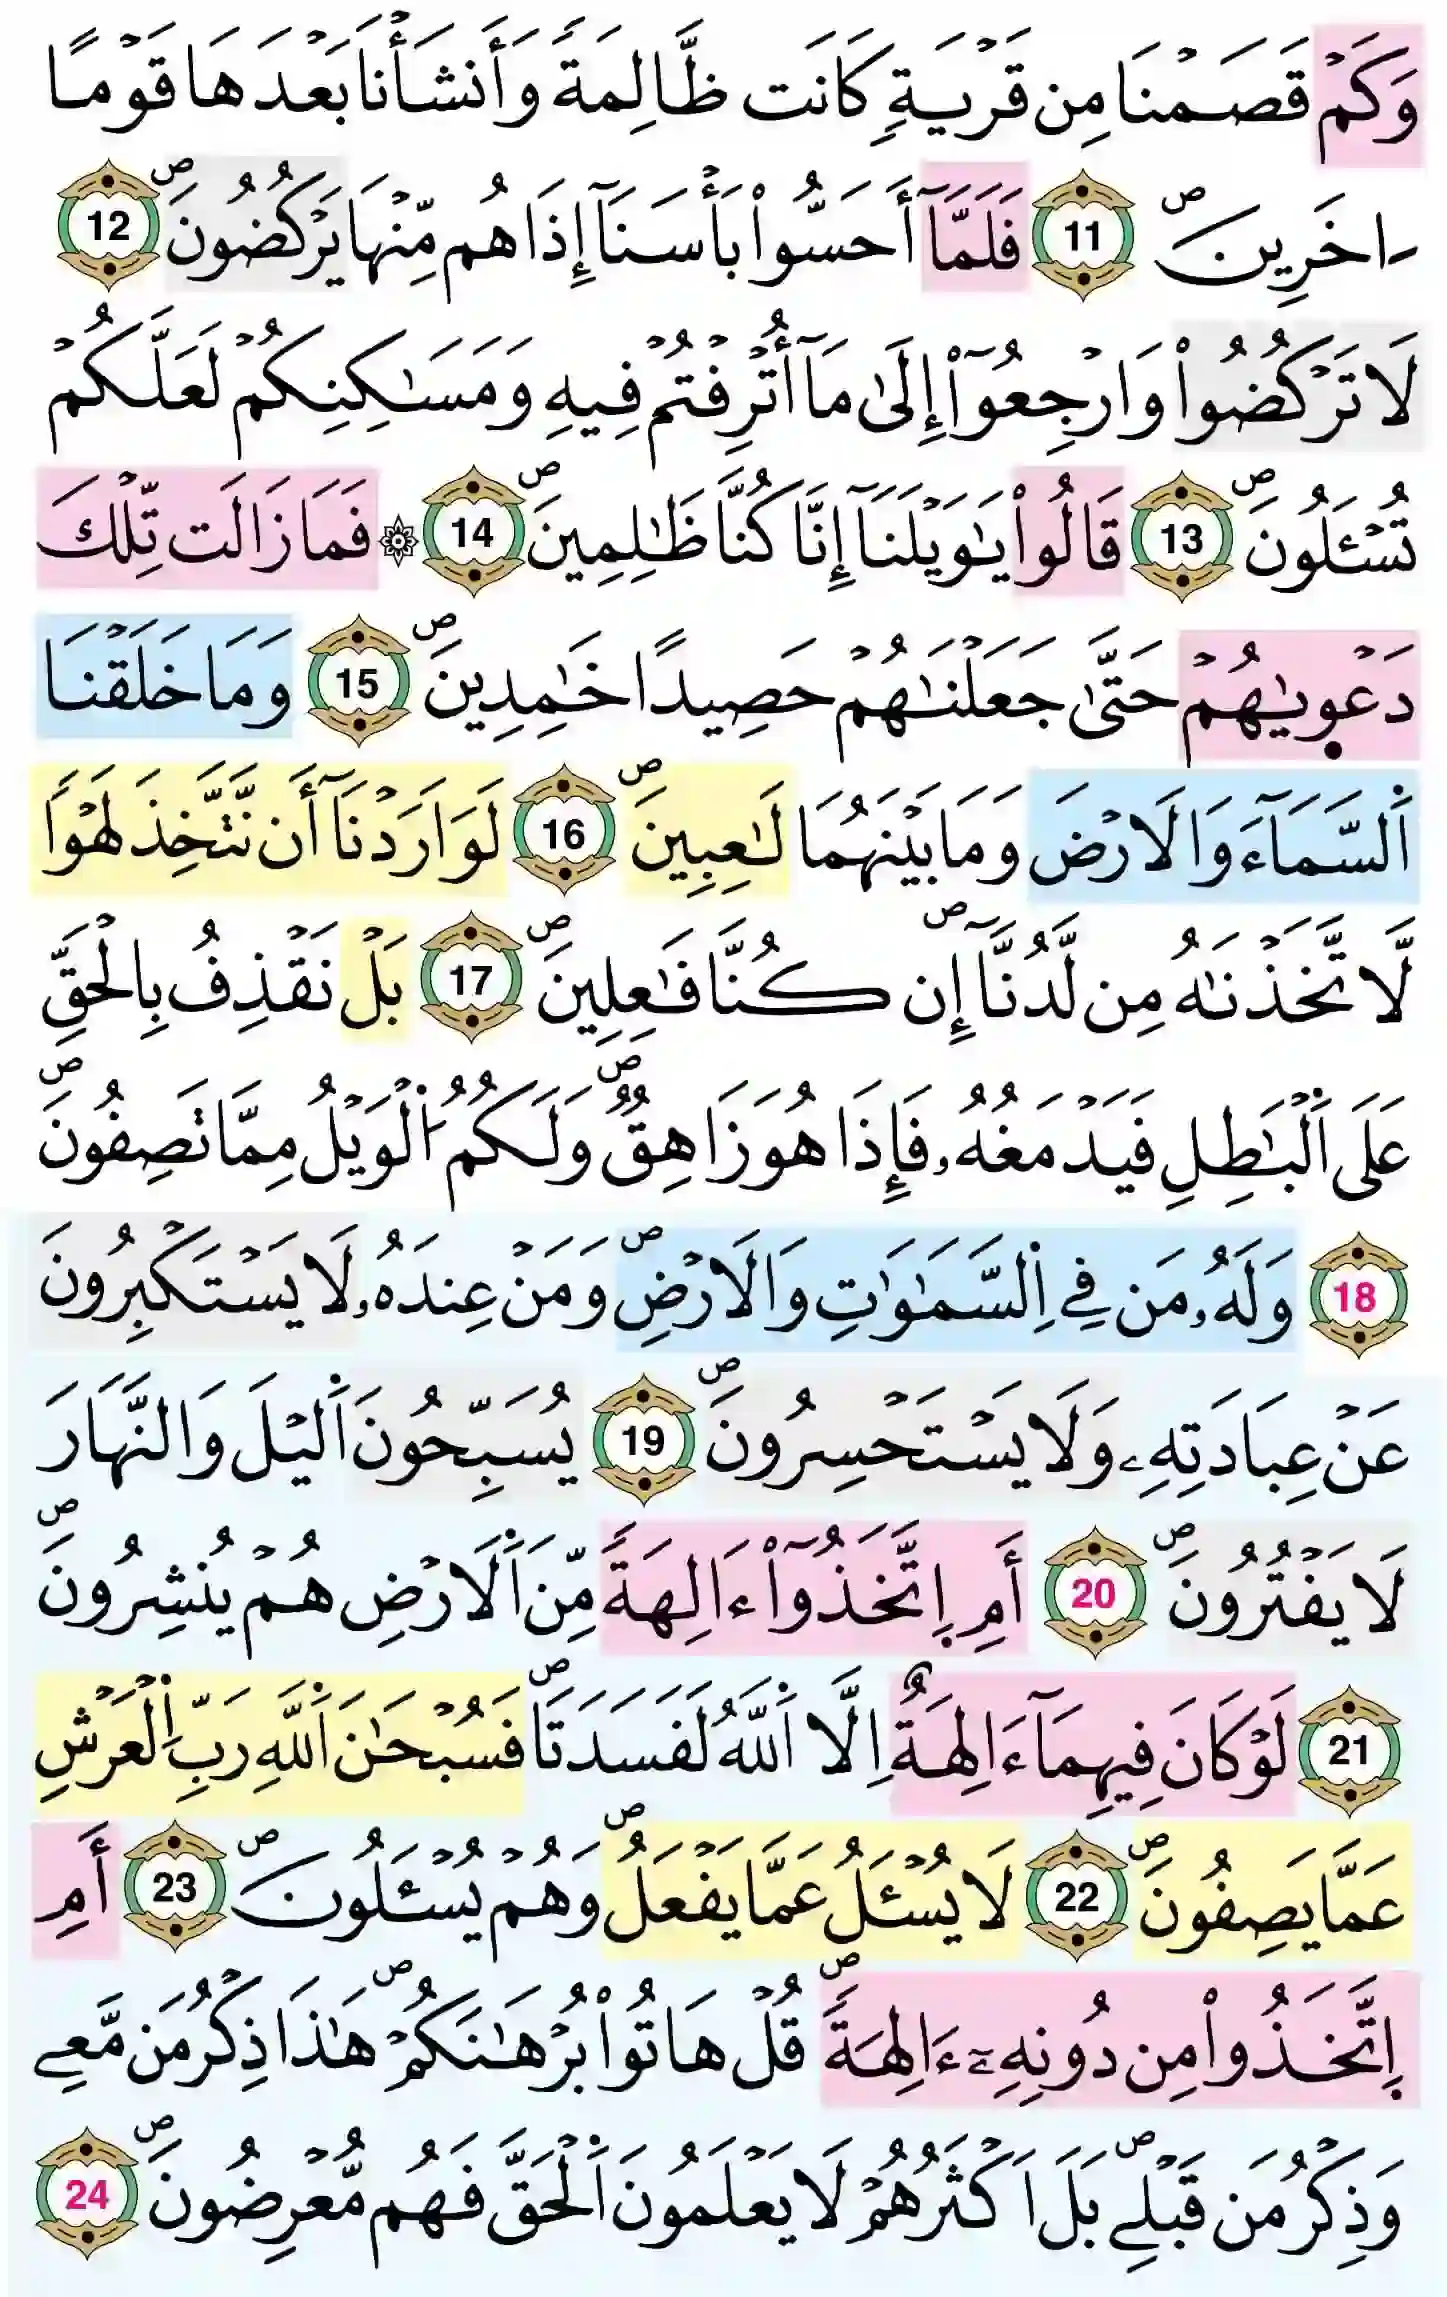 وَكَمْ قَصَمْنَا مِن قَرْيَةٍ كَانَت ظَّالِمَةً وَأَنشَأْنَا بَعْدَهَا قَوْمًا
اخَرِينَۖ 11 فَلَمَّآ أَحَسُّواْ بَأْسَنَآ إِذَا هُم مِّنْهَا يَرْكُضُونَۖ 12
لَا تَرْكُضُواْ وَارْجِعُوٓاْ إِلَىٰ مَآ أُتْرِفْتُمْ فِيهِ وَمَسَٰكِنِكُمْ لَعَلَّكُمْ
تُسْـَٔلُونَۖ 13 قَالُواْ يَٰوَيْلَنَآ إِنَّا كُنَّا ظَٰلِمِينَۖ 14 ۞ فَمَا زَالَت تِّلْكَ
دَعْو۪يٰهُمْ حَتَّىٰ جَعَلْنَٰهُمْ حَصِيدًا خَٰمِدِينَۖ 15 وَمَا خَلَقْنَا
اَ۬لسَّمَآءَ وَالَارْضَ وَمَا بَيْنَهُمَا لَٰعِبِينَۖ 16 لَوَ اَرَدْنَآ أَن نَّتَّخِذَ لَهْوًا
لَّاتَّخَذْنَٰهُ مِن لَّدُنَّآۖ إِن كُنَّا فَٰعِلِينَۖ 17 بَلْ نَقْذِفُ بِالْحَقِّ
عَلَى اَ۬لْبَٰطِلِ فَيَدْمَغُهُۥ فَإِذَا هُوَ زَاهِقٌۖ وَلَكُمُ اُ۬لْوَيْلُ مِمَّا تَصِفُونَۖ
18 وَلَهُۥ مَن فِي اِ۬لسَّمَٰوَٰتِ وَالَارْضِۖ وَمَنْ عِندَهُۥ لَا يَسْتَكْبِرُونَ
عَنْ عِبَادَتِهِۦ وَلَا يَسْتَحْسِرُونَۖ 19 يُسَبِّحُونَ اَ۬ليْلَ وَالنَّهَارَ
لَا يَفْتُرُونَۖ 20 أَمِ اِ۪تَّخَذُوٓاْ ءَالِهَةً مِّنَ اَ۬لَارْضِ هُمْ يُنشِرُونَۖ
21 لَوْ كَانَ فِيهِمَآ ءَالِهَةٌ اِلَّا اَ۬للَّهُ لَفَسَدَتَاۖ فَسُبْحَٰنَ اَ۬للَّهِ رَبِّ اِ۬لْعَرْشِ
عَمَّا يَصِفُونَۖ 22 لَا يُسْـَٔلُ عَمَّا يَفْعَلُۖ وَهُمْ يُسْـَٔلُونَۖ 23 أَمِ
اِ۪تَّخَذُواْ مِن دُونِهِۦٓ ءَالِهَةًۖ قُلْ هَاتُواْ بُرْهَٰنَكُمْۖ هَٰذَا ذِكْرُ مَن مَّعِے
وَذِكْرُ مَن قَبْلِےۖ بَلَ اَكْثَرُهُمْ لَا يَعْلَمُونَ اَ۬لْحَقَّ فَهُم مُّعْرِضُونَۖ 24